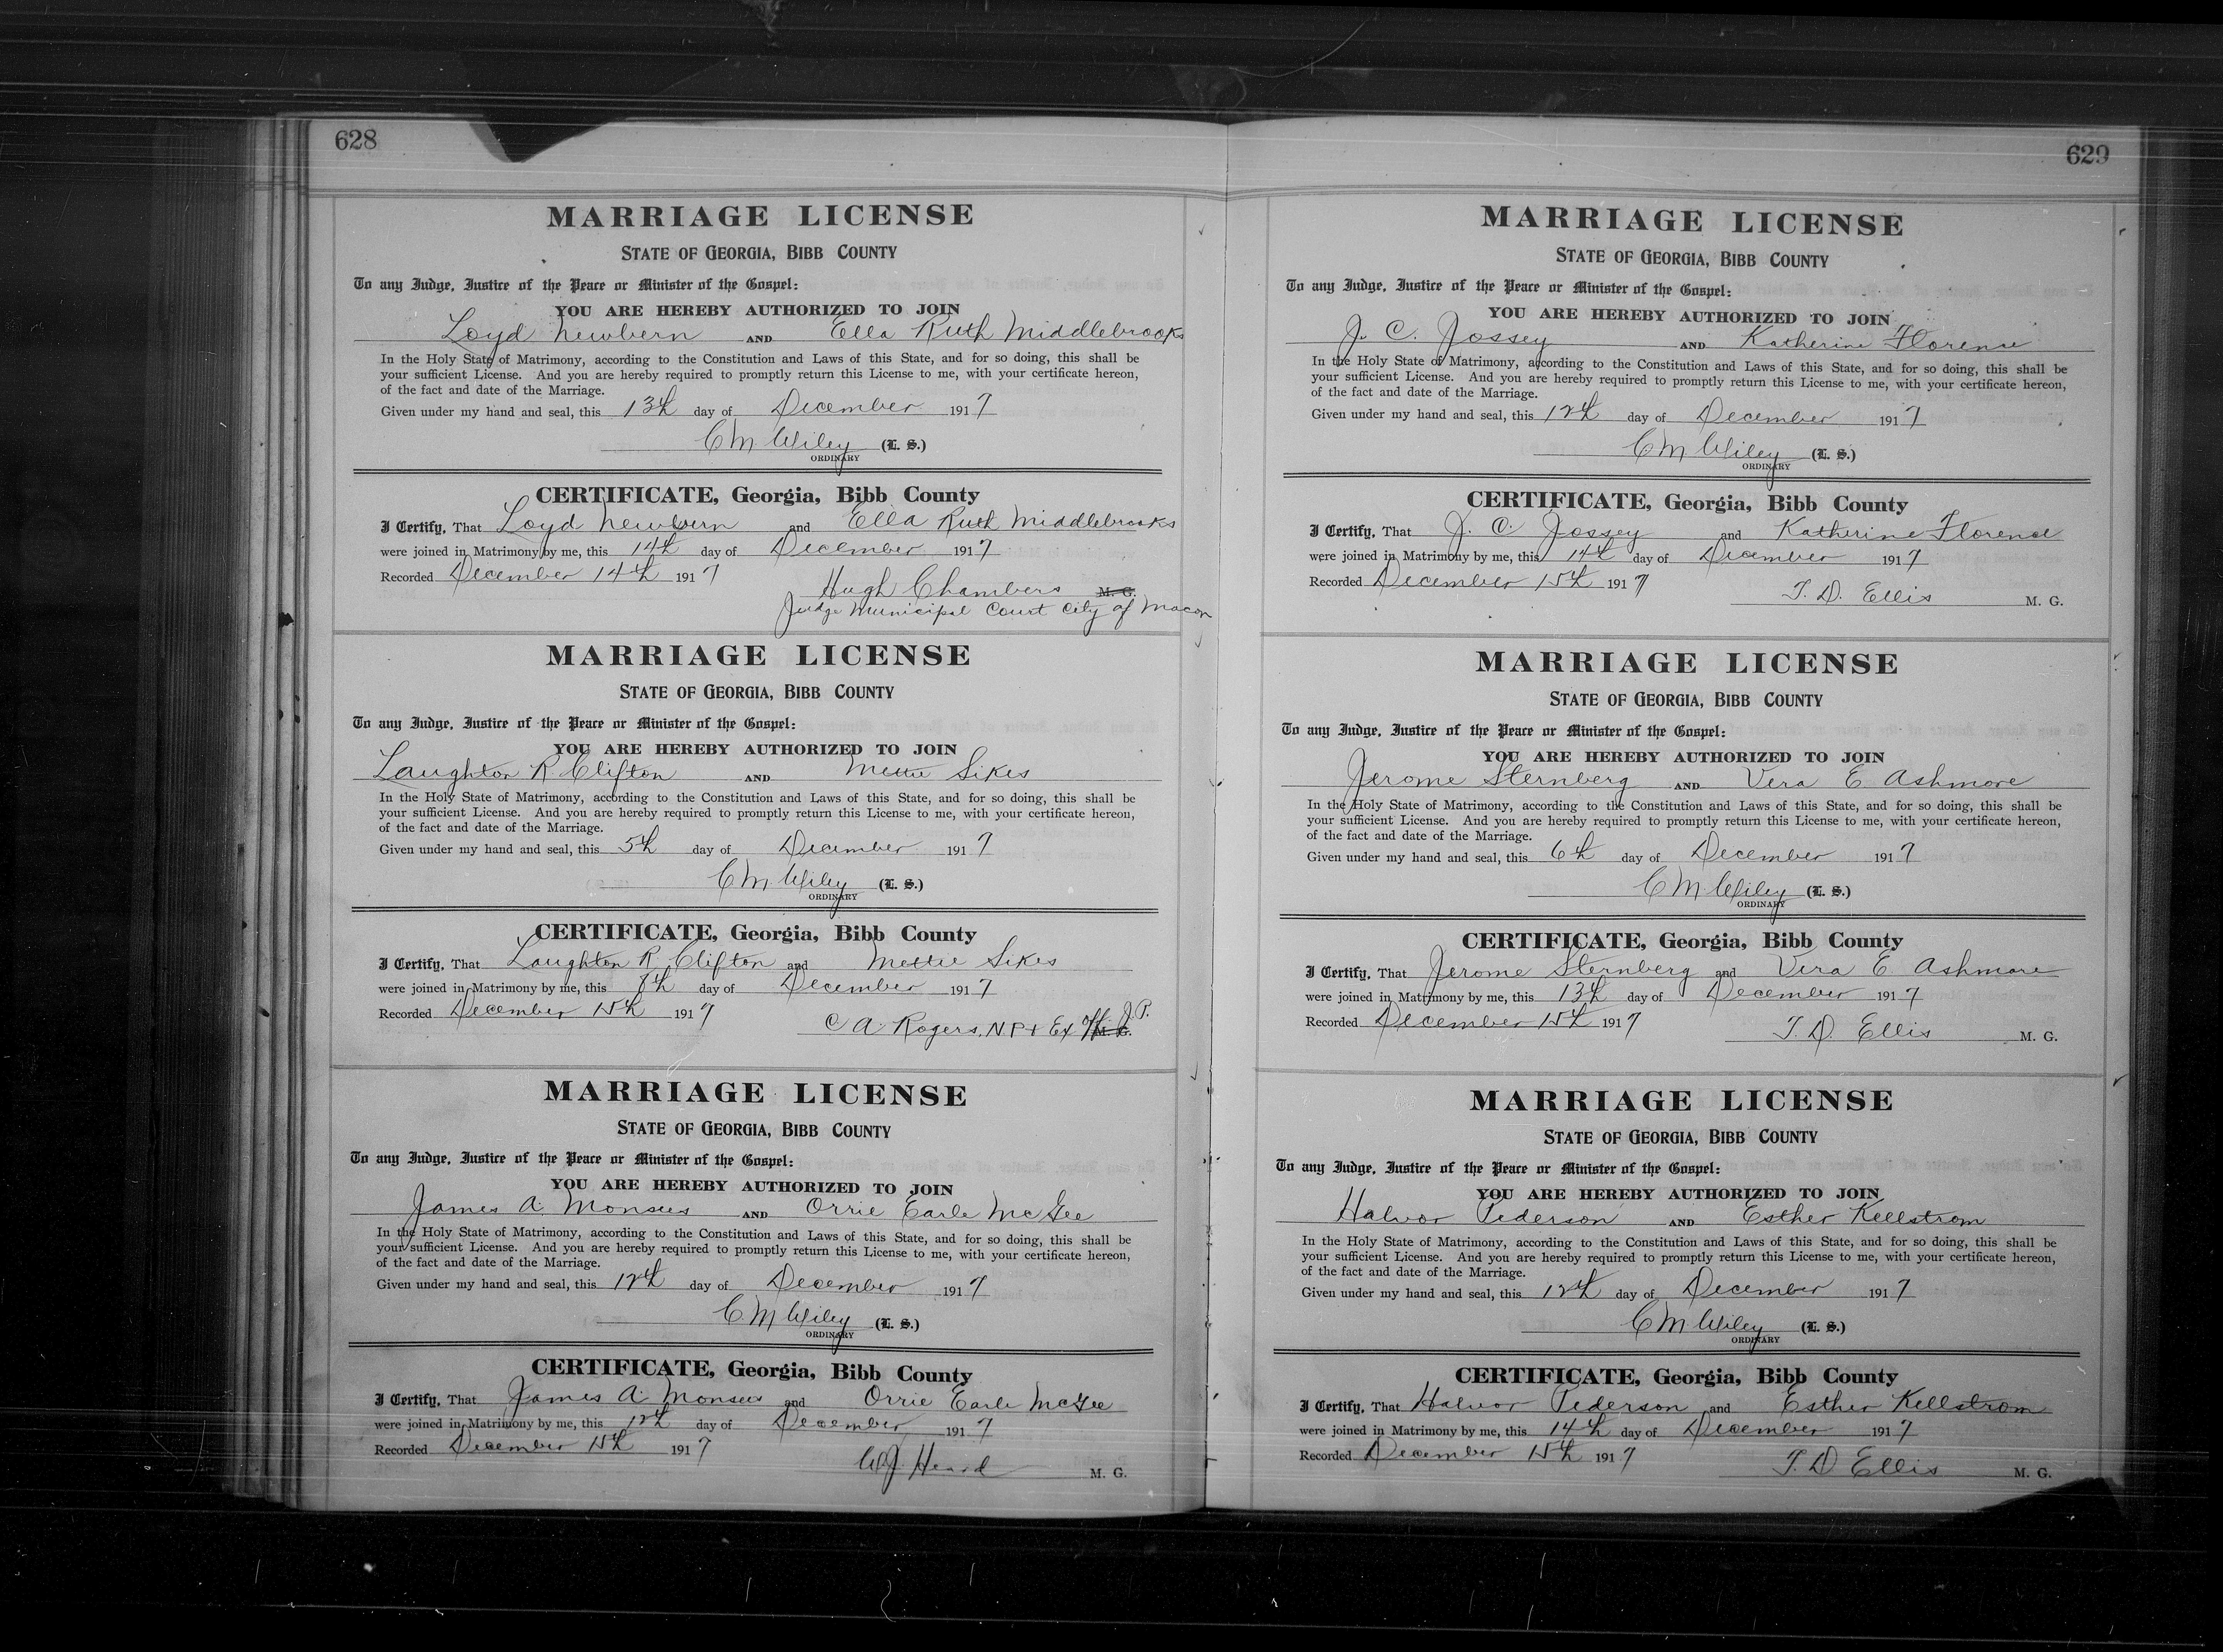 628
MARRIAGE LICENSE
STATE OF GEORGIA, BIBB COUNTY
To any Judge, Justice of the Peace or Minister of the Gospel:
YOU ARE HEREBY AUTHORIZED TO JOIN
Loyd Newbern AND Ella Ruth Middlebrooks
In the Holy State of Matrimony, according to the Constitution and Laws of this State, and for so doing, this shall be
your sufficient License. And you are hereby required to promptly return this License to me, with your certificate hereon,
of the fact and date of the Marriage.
Given under my hand and seal, this 13th day of December 1917
C M Wiley (L. S.)
ORDINARY
CERTIFICATE, Georgia, Bibb County
I Certify, That Loyd Newbern and Ella Ruth Middlebrooks
were joined in Matrimony by me, this 14th day of December 1917
Recorded December 14th 1917
Hugh Chambers M. G.
Judge Municipal Court City of Macon
MARRIAGE LICENSE
STATE OF GEORGIA, BIBB COUNTY
To any Judge, Justice of the Peace or Minister of the Gospel:
YOU ARE HEREBY AUTHORIZED TO JOIN
Laughton R. Clifton AND Mettie Sikes
In the Holy State of Matrimony, according to the Constitution and Laws of this State, and for so doing, this shall be
your sufficient License. And you are hereby required to promptly return this License to me, with your certificate hereon,
of the fact and date of the Marriage.
Given under my hand and seal, this 5th day of December 1917
C M Wiley (L. S.)
ORDINARY
CERTIFICATE, Georgia, Bibb County
I Certify, That Laughton R. Clifton and Mettie Sikes
were joined in Matrimony by me, this 8th day of December 1917
Recorded December 15th 1917
C A. Rogers, N P + Ex off. J. P. M. G.
MARRIAGE LICENSE
STATE OF GEORGIA, BIBB COUNTY
To any Judge, Justice of the Peace or Minister of the Gospel:
YOU ARE HEREBY AUTHORIZED TO JOIN
James A. Monsees AND Orrie Earle McGee
In the Holy State of Matrimony, according to the Constitution and Laws of this State, and for so doing, this shall be
your sufficient License. And you are hereby required to promptly return this License to me, with your certificate hereon,
of the fact and date of the Marriage.
Given under my hand and seal, this 12th day of December 1917
C. M Wiley (L. S.)
ORDINARY
CERTIFICATE, Georgia, Bibb County
I Certify, That James A. Monsees and Orrie Earle McGee
were joined in Matrimony by me, this 12th day of December 1917
Recorded December 15th 1917
W. J. Heard M. G.
629
MARRIAGE LICENSE
STATE OF GEORGIA, BIBB COUNTY
To any Judge, Justice of the Peace or Minister of the Gospel:
YOU ARE HEREBY AUTHORIZED TO JOIN
J. C. Jossey AND Katherine Florence
In the Holy State of Matrimony, according to the Constitution and Laws of this State, and for so doing, this shall be
your sufficient License. And you are hereby required to promptly return this License to me, with your certificate hereon,
of the fact and date of the Marriage.
Given under my hand and seal, this 12th day of December 1917
C M Wiley (L. S.)
ORDINARY
CERTIFICATE, Georgia, Bibb County
I Certify, That J. C. Jossey and Katherine Florence
were joined in Matrimony by me, this 14th day of December 1917
Recorded December 15th 1917
T. D. Ellis M. G.
MARRIAGE LICENSE
STATE OF GEORGIA, BIBB COUNTY
To any Judge, Justice of the Peace or Minister of the Gospel:
YOU ARE HEREBY AUTHORIZED TO JOIN
Jerome Sternberg AND Vera E. Ashmore
In the Holy State of Matrimony, according to the Constitution and Laws of this State, and for so doing, this shall be
your sufficient License. And you are hereby required to promptly return this License to me, with your certificate hereon,
of the fact and date of the Marriage.
Given under my hand and seal, this 6th day of December 1917
C M. Wiley (L. S.)
ORDINARY
CERTIFICATE, Georgia, Bibb County
I Certify, That Jerome Sternberg and Vera E. Ashmore
were joined in Matrimony by me, this 13th day of December 1917
Recorded December 15th 1917
T. D. Ellis M. G.
MARRIAGE LICENSE
STATE OF GEORGIA, BIBB COUNTY
To any Judge, Justice of the Peace or Minister of the Gospel:
YOU ARE HEREBY AUTHORIZED TO JOIN
Halvor Pederson AND Esther Kellstrom
In the Holy State of Matrimony, according to the Constitution and Laws of this State, and for so doing, this shall be
your sufficient License. And you are hereby required to promptly return this License to me, with your certificate hereon,
of the fact and date of the Marriage.
Given under my hand and seal, this 12th day of December 1917
C M Wiley (L. S.)
ORDINARY
CERTIFICATE, Georgia, Bibb County
I Certify, That Halvor Pederson and Esther Kellstrom
were joined in Matrimony by me, this 14th day of December 1917
Recorded December 15th 1917
T. D Ellis M. G.